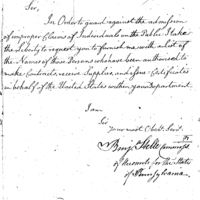 Sir,
In Order to guard against the admission
of improper Claims of Individuals on the Public I take
the Liberty to request you to furnish me with a list of
the Names of those Persons who have been authorised to
make Contracts, receive Supplies, and issue Certificates
in behalf of the United States within your Department
I am
Sir
Your most Obedt. Servt.
Benjn. Stelle
of Accounts for the State
of Pennsylvania